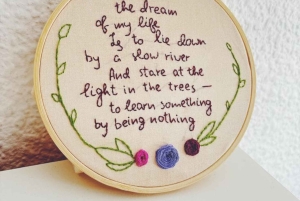 the dream
of my life
Is to lie down
by a slow river
And stare at the
light in the trees —
to learn something
by being nothing